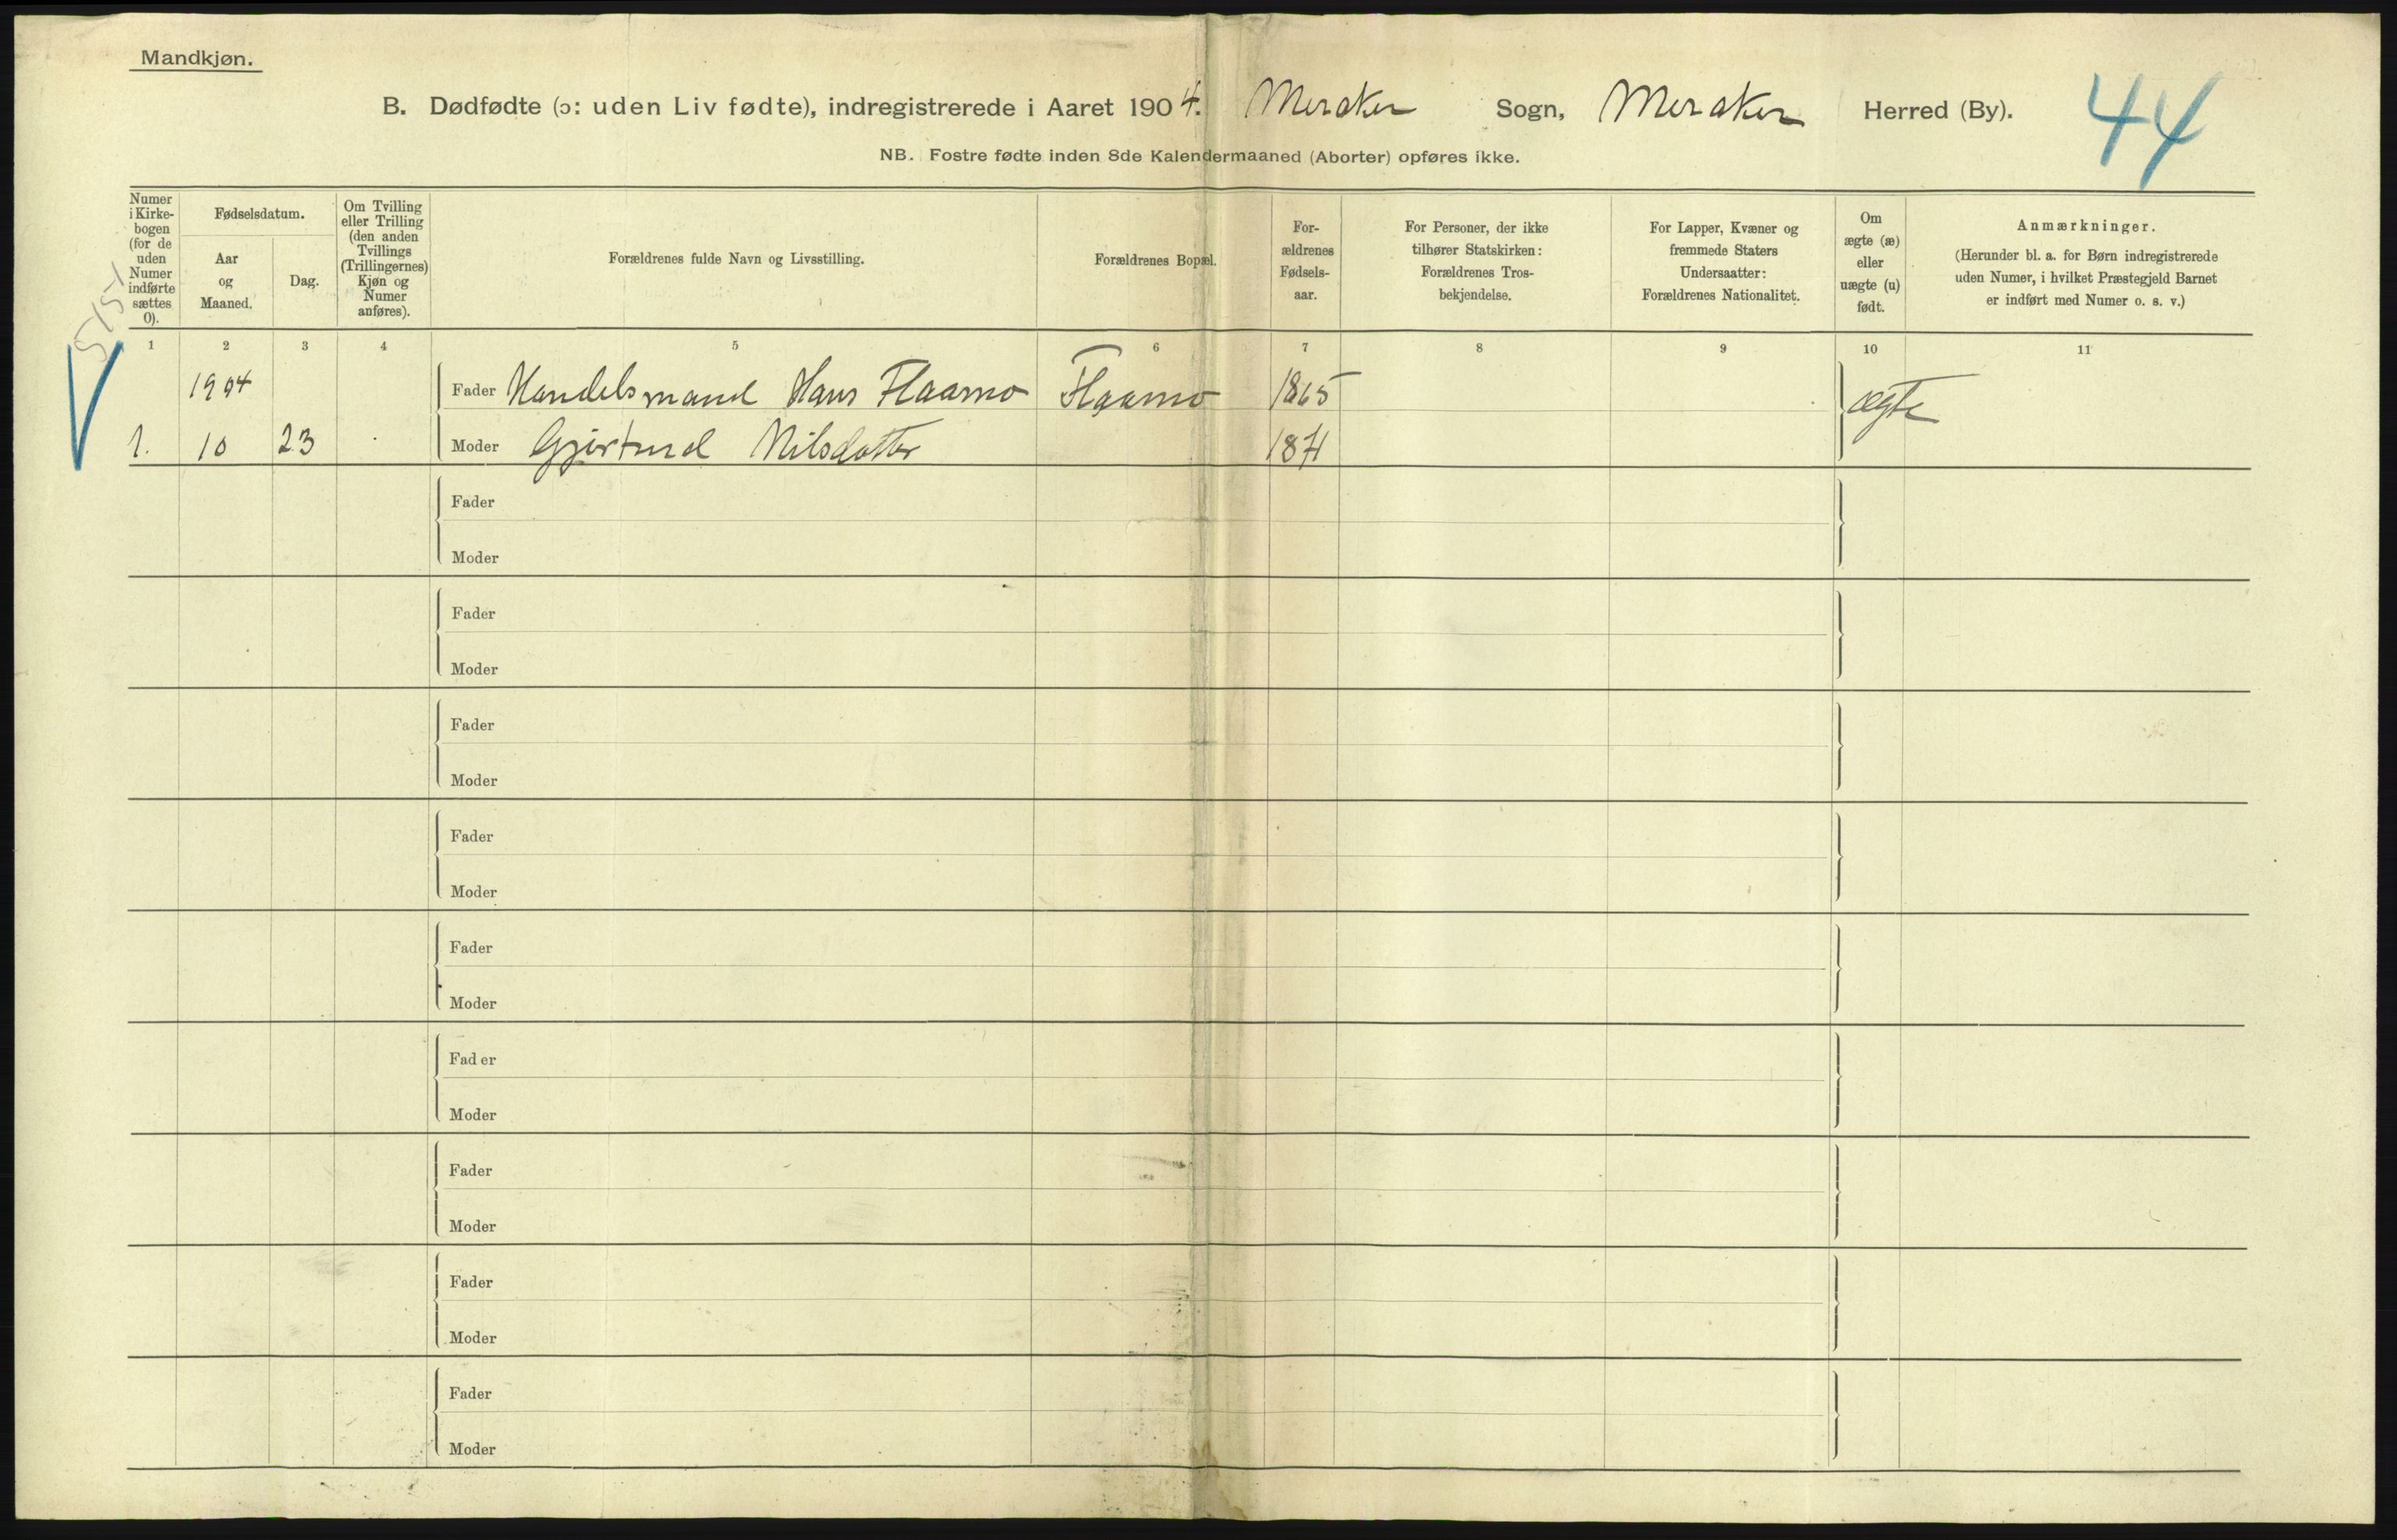 Mandkjøn.
B. Dødfødte (ɔ: uden Liv fødte), indregistrerede i Aaret 1904. Meraker Sogn, Meraker Herred (By). 44
NB. Fostre fødte inden 8de Kalendermaaned (Aborter) opføres ikke.
Numer
i Kirke-
bogen
(for de
uden
Numer
indførte
sættes
0).
Fødselsdatum.
Aar
og
Maaned.
Dag.
Om Tvilling
eller Trilling
(den anden
Tvillings
(Trillingernes)
Kjøn og
Numer
anføres).
Forældrenes fulde Navn og Livsstilling.
Forældrenes Bopæl.
For-
ældrenes
Fødsels-
aar.
For Personer, der ikke
tilhører Statskirken:
Forældrenes Tros-
bekjendelse.
For Lapper, Kvæner og
fremmede Staters
Undersaatter:
Forældrenes Nationalitet.
Om
ægte (æ)
eller
uægte (u)
født.
Anmærkninger.
(Herunder bl. a. for Børn indregistrerede
uden Numer, i hvilket Præstegjeld Barnet
er indført med Numer o. s. v.)
1 2 3 4 5 6 7 8 9 10 11
1904 Fader Handelsmand Hans Flaamo Flaamo 1865 ægte
1. 10 23 Moder Gjertrud Nilsdatter 1871
Fader
Moder
Fader
Moder
Fader
Moder
Fader
Moder
Fader
Moder
Fader
Moder
Fader
Moder
Fader
Moder
Fader
Moder